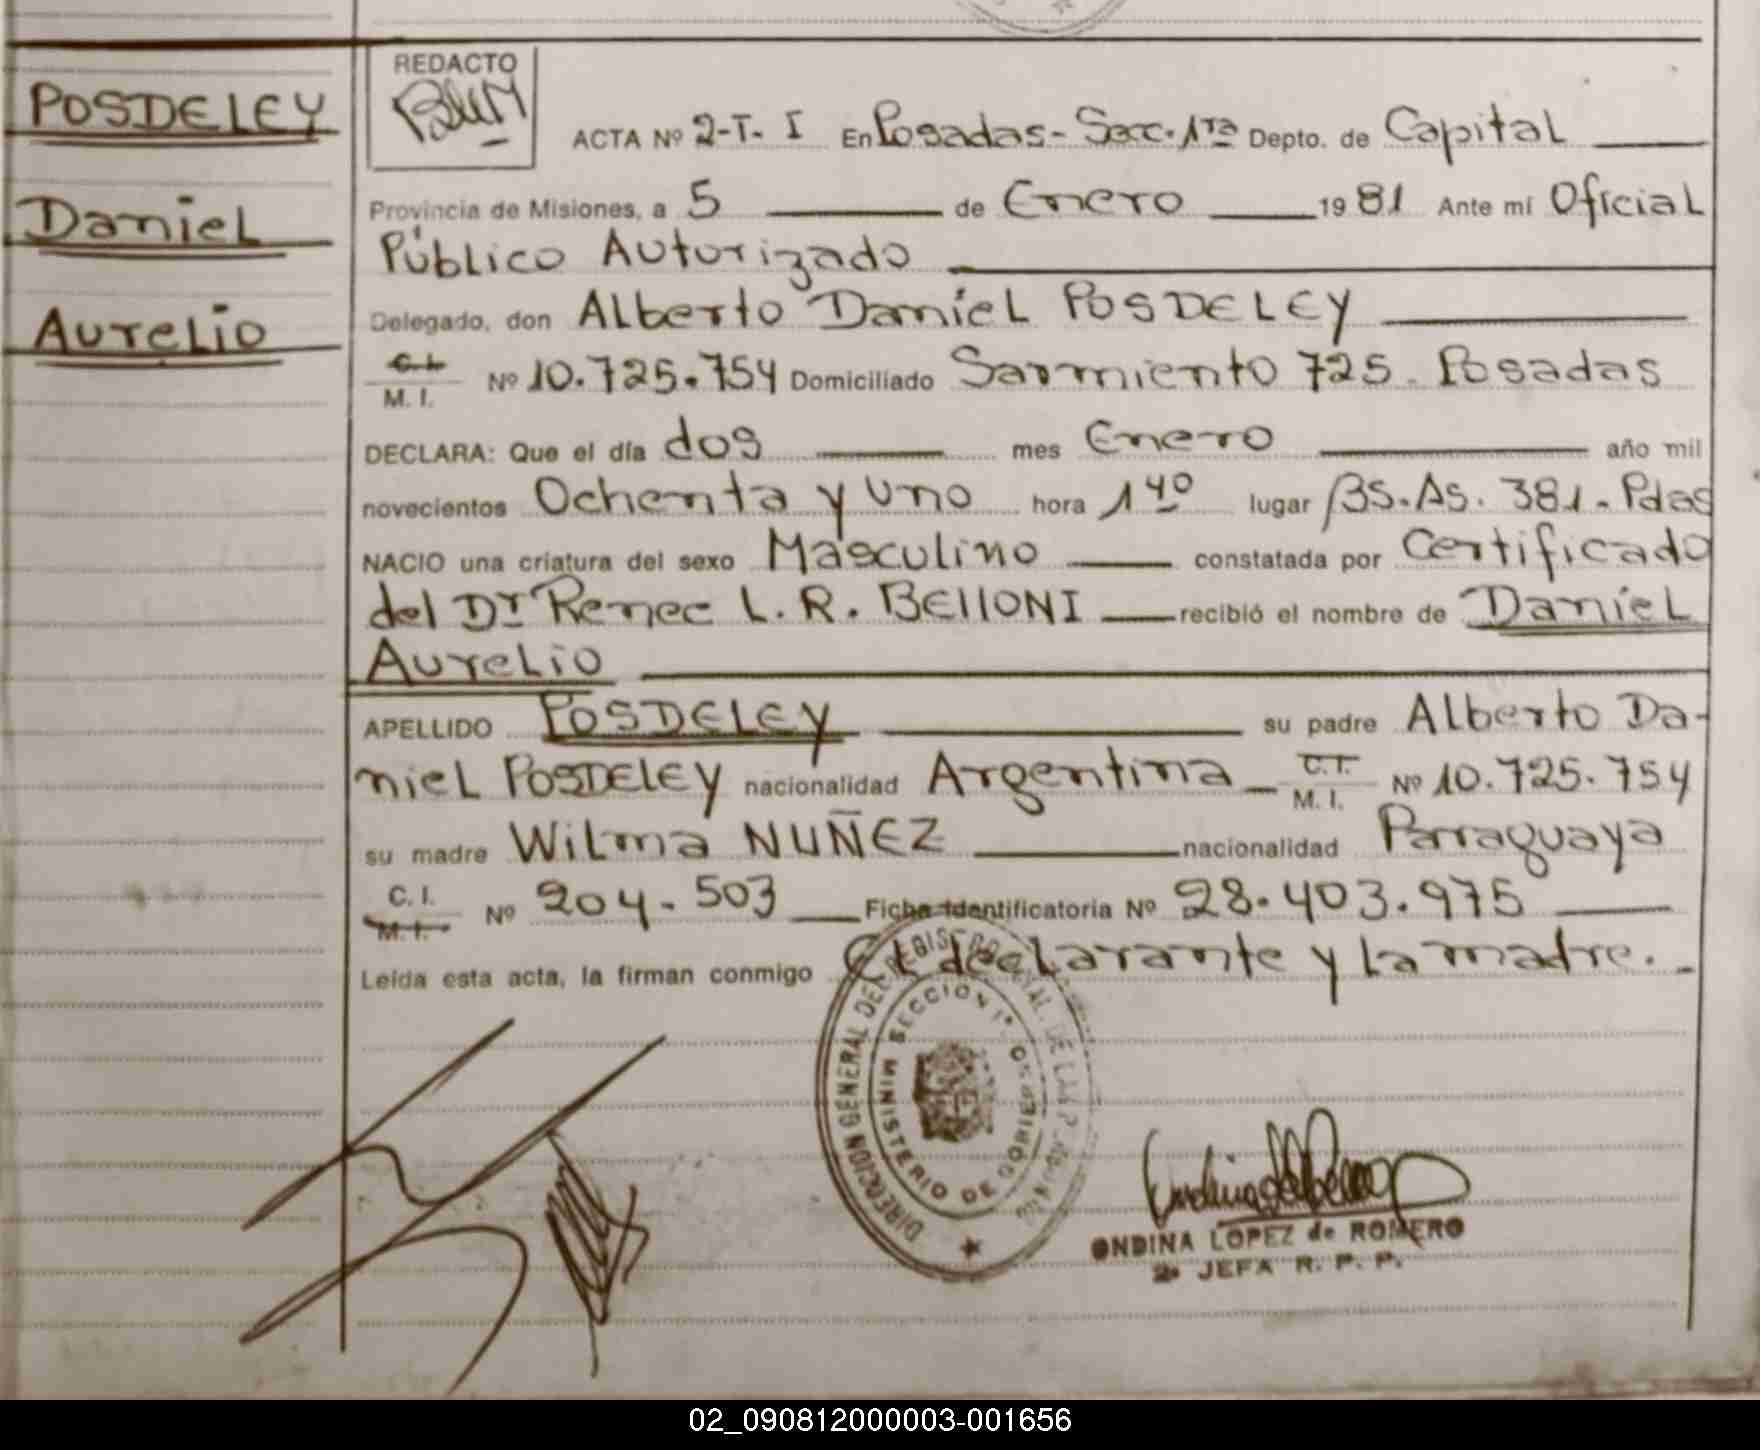 POSDELEY
Daniel
Aurelio
REDACTO
ACTA Nº 2-T- I En Posadas- Secc. 1ra Depto. de Capital
Provincia de Misiones, a 5 de Enero 1981 Ante mí Oficial
Público Autorizado
Delegado, don Alberto Daniel POSDELEY
C.I.
M. I. Nº 10.725.754 Domiciliado Sarmiento 725. Posadas
DECLARA: Que el día dos mes Enero año mil
novecientos Ochenta y uno hora 1⁴⁰ lugar BS. As. 381. Pdas
NACIO una criatura del sexo Masculino constatada por Certificado
del Dr Renee L. R. BELLONI recibió el nombre de Daniel
Aurelio
APELLIDO POSDELEY su padre Alberto Da-
niel POSDELEY nacionalidad Argentina C.I. M. I. Nº 10.725.754
su madre Wilma NUÑEZ nacionalidad Parraguaya
C. I.
M. I. Nº 204.503 Ficha Identificatoria Nº 28.403.975
Leída esta acta, la firman conmigo El declarante y la madre.
DIRECCION GENERAL DEL REGISTRO
SECCION 1ª
MINISTERIO DE GOBIERNO
ONDINA LOPEZ de ROMERO
2ª JEFA R. P. P.
02_090812000003-001656